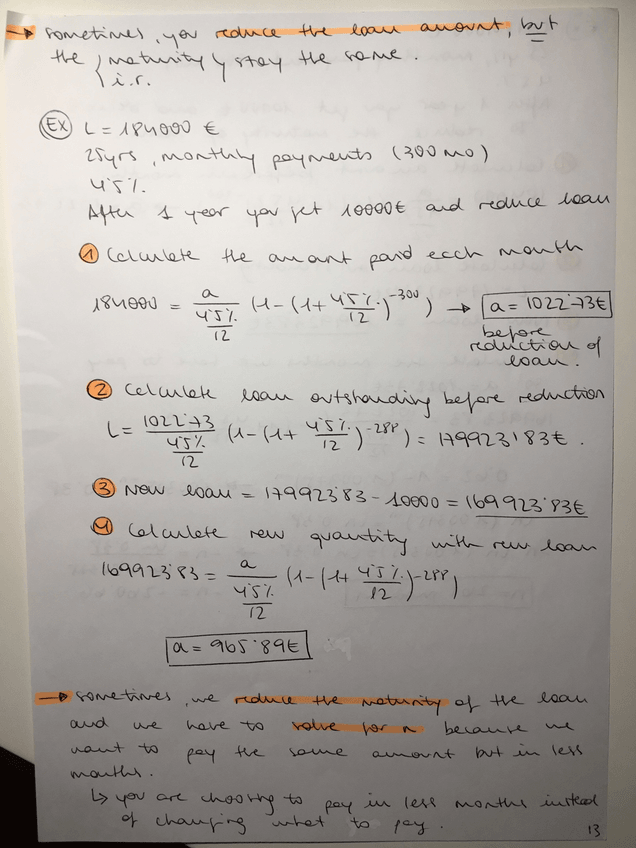 → sometimes, you reduce the loan amount, but
the { maturity / i.r. } stay the same.
EX L = 184000 €
25yrs, monthly payments (300 mo)
4'5%.
After 1 year you get 10000€ and reduce loan
① Calculate the amount paid each month
184000 = a / (4'5%/12) (1-(1+ 4'5%/12)^-300) → a = 1022'73€
before
reduction of
loan.
② Calculate loan outstanding before reduction
L = 1022'73 / (4'5%/12) (1-(1+ 4'5%/12)^-288) = 179923'83€.
③ New loan = 179923'83 - 10000 = 169923'83€
④ Calculate new quantity with new loan
169923'83 = a / (4'5%/12) (1-(1+ 4'5%/12)^-288)
a = 965'89€
→ sometimes, we reduce the maturity of the loan
and we have to solve for n because we
want to pay the same amount but in less
months.
↳ you are choosing to pay in less months instead
of changing what to pay.
13